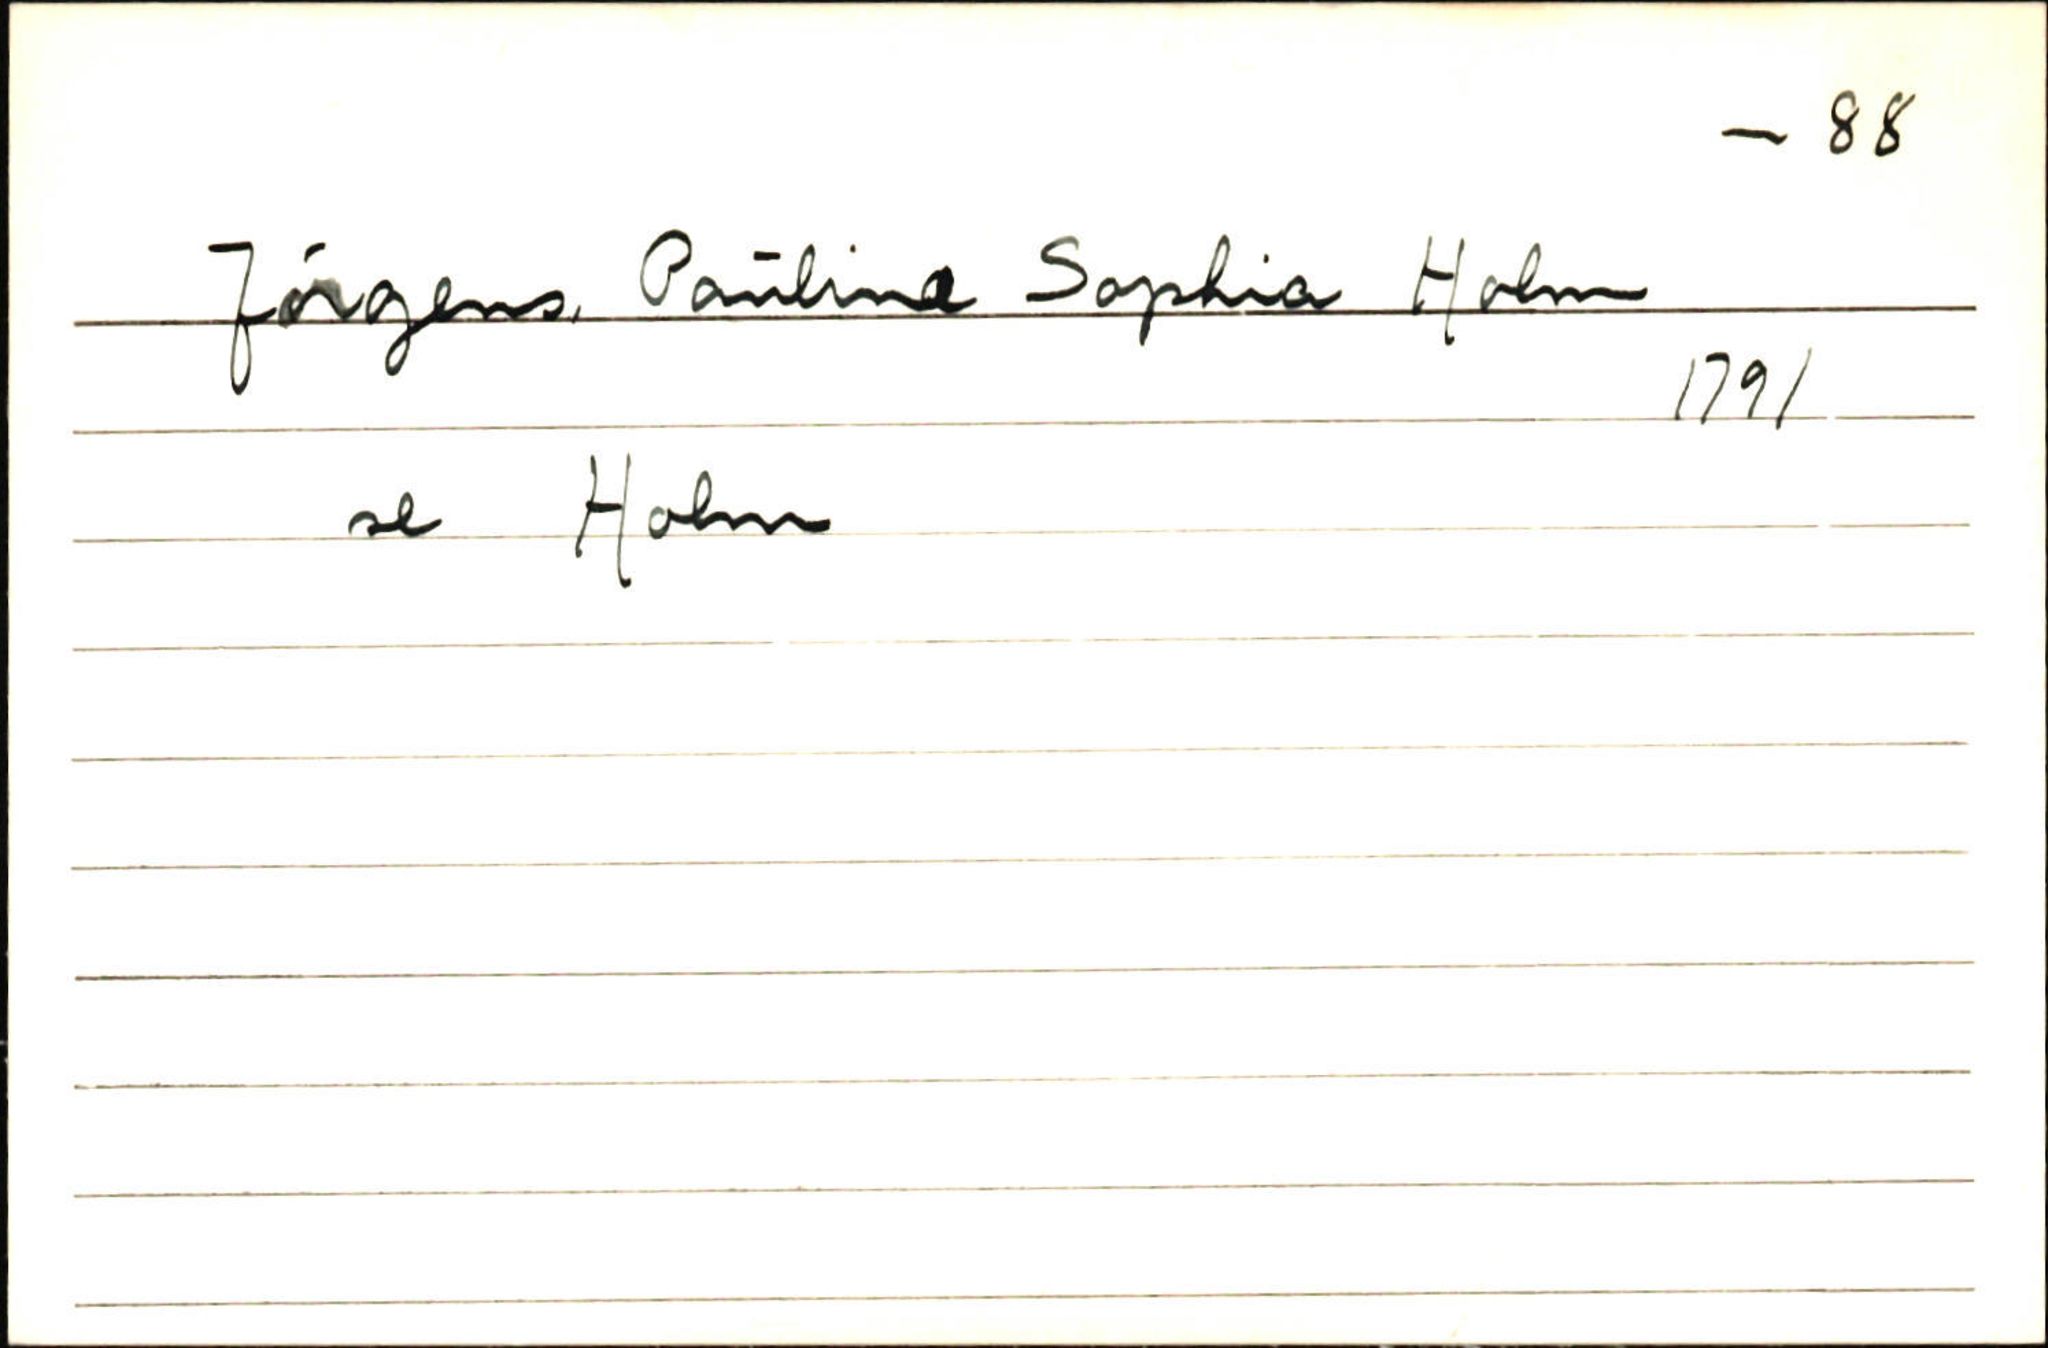 — 88
Jörgens, Paulina Sophia Holm
1791
se Holm